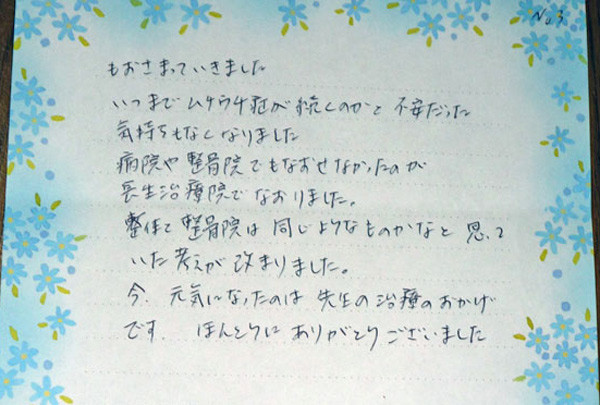 No 3
もおさまっていきました
いつまでムチウチ症が続くのかと不安だった
気持ちもなくなりました
病院や整骨院でもなおせなかったのが
長生治療院でなおりました。
整体と整骨院は同じようなものかなと思って
いた考えが改まりました。
今、元気になったのは先生の治療のおかげ
です。ほんとうにありがとうございました